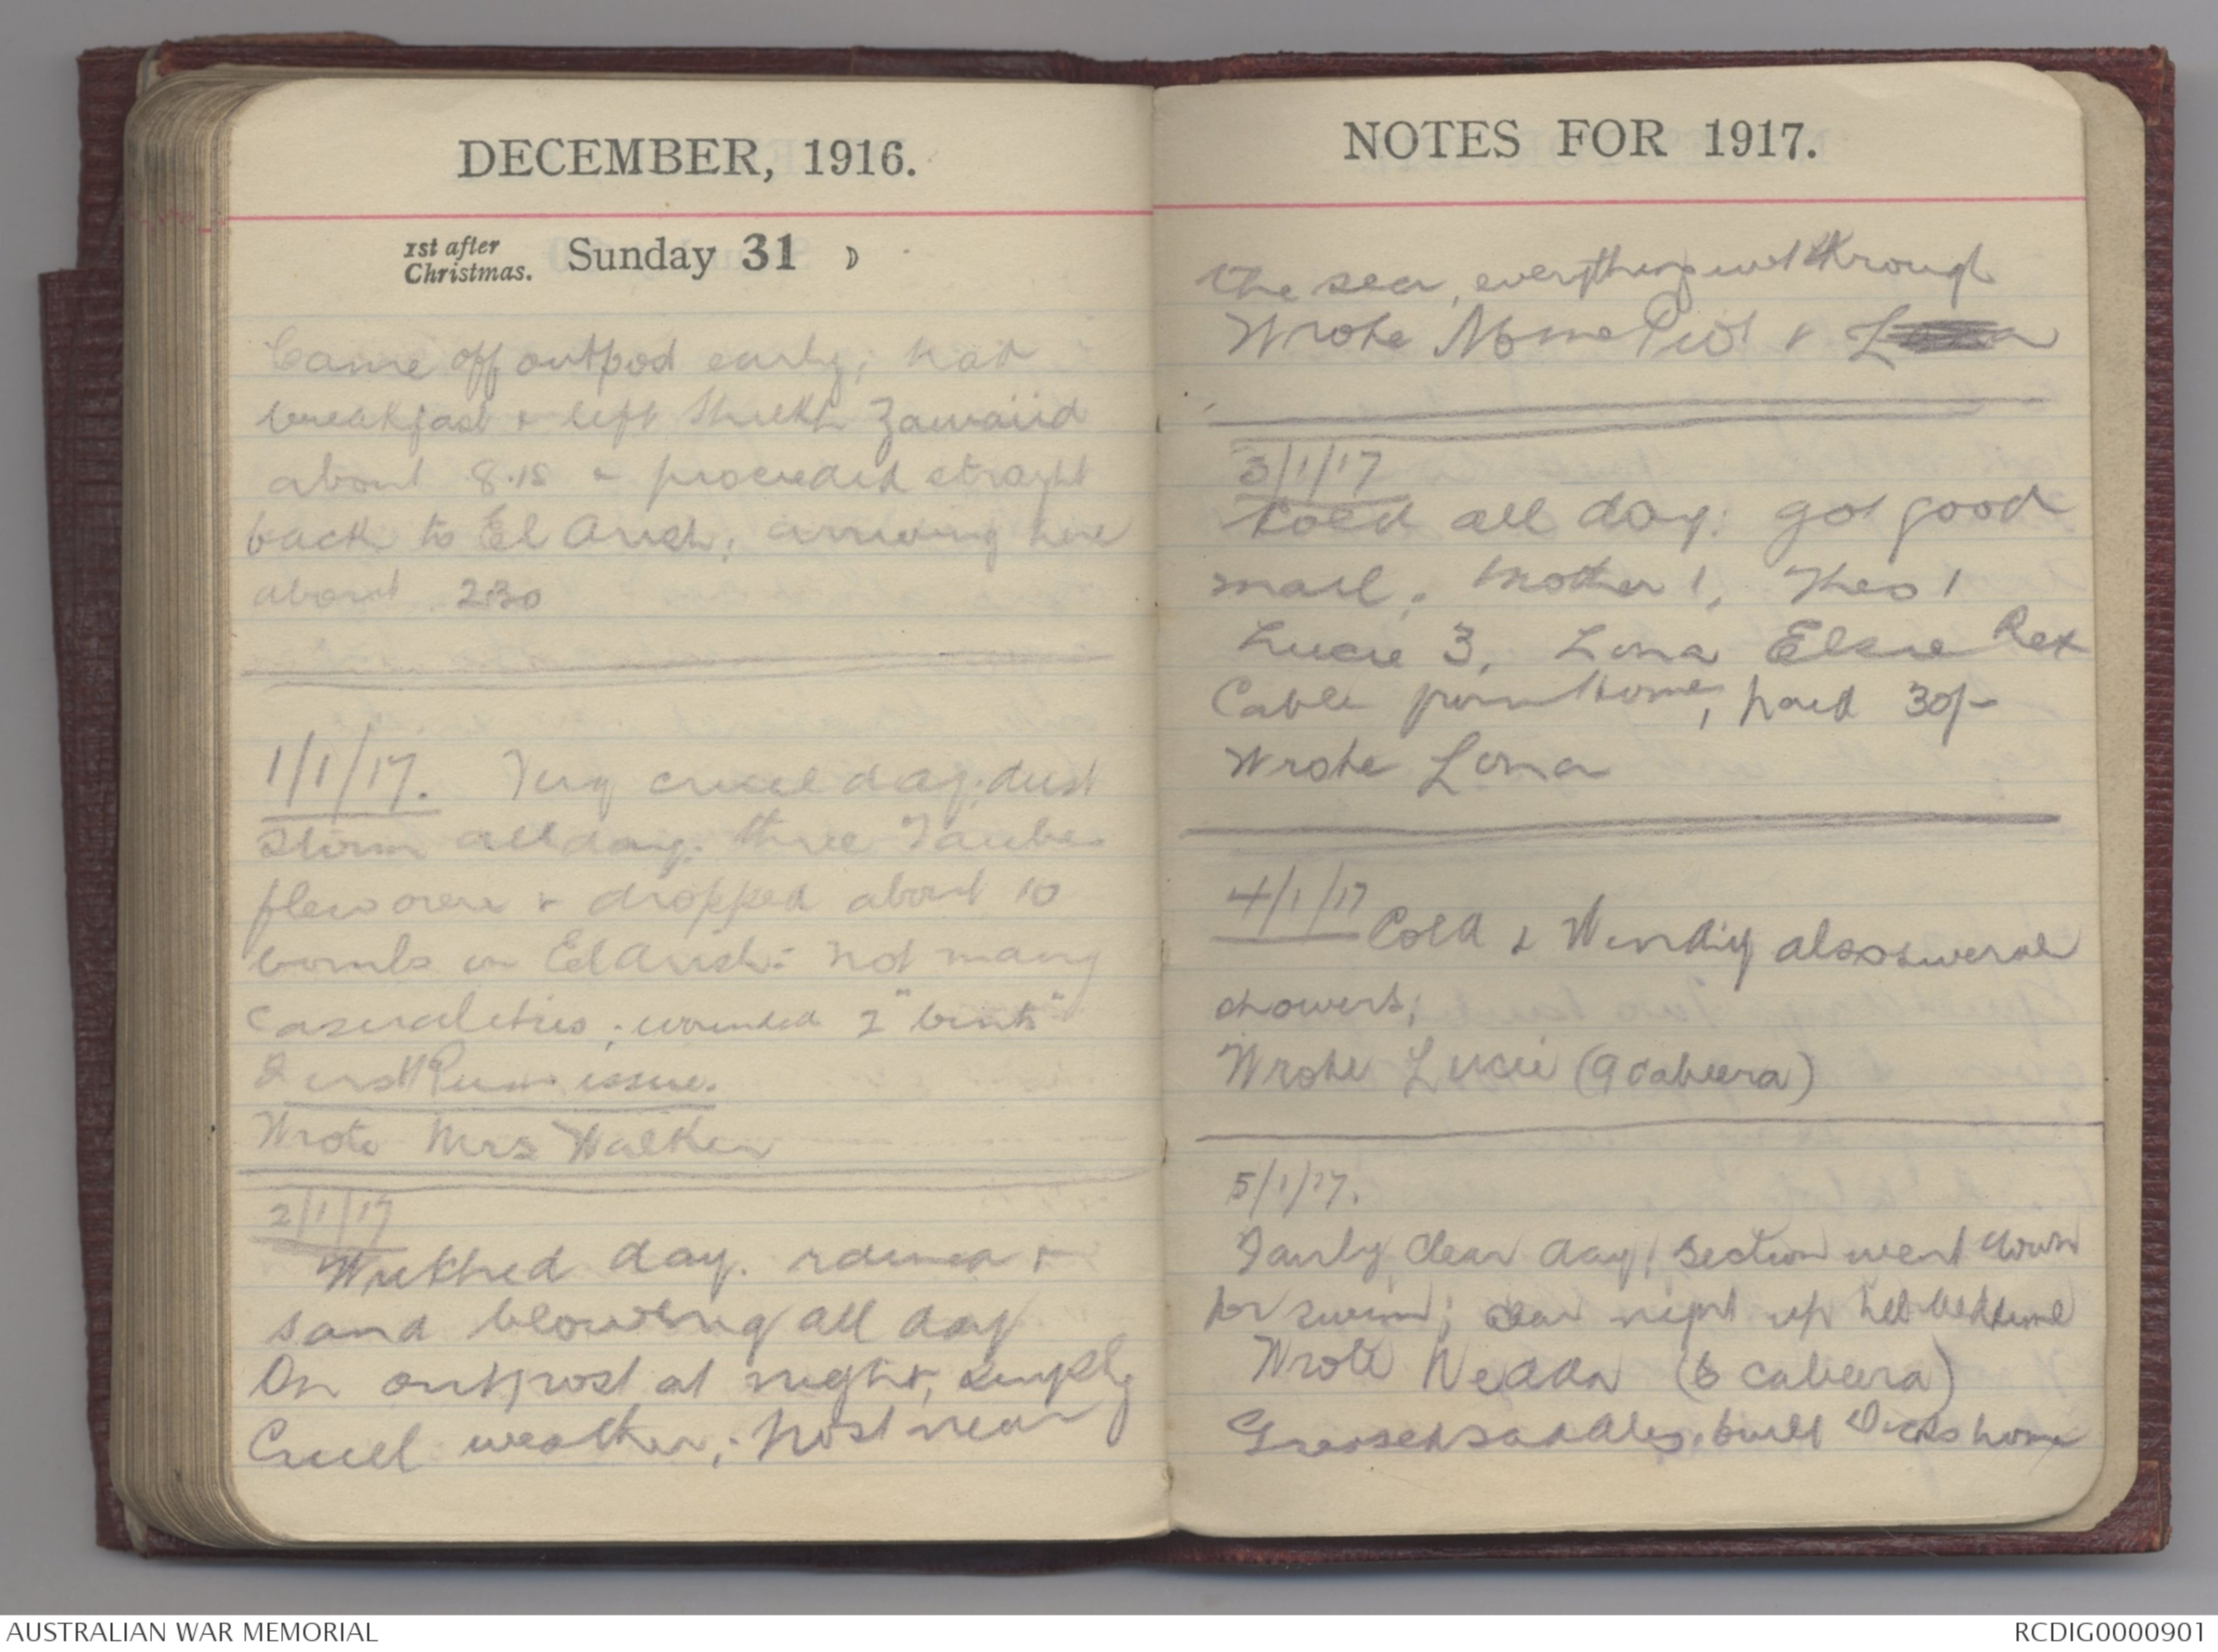 DECEMBER, 1916.
1st after
Christmas. Sunday 31
Came off outpost early; had
breakfast & left Sheikh Zawaiid
about 8.15 & proceeded straight
back to El Arish, arriving here
about 2.30
1/1/17. Very cruel day; dust
storm all day. three Taubes
flew over & dropped about 10
bombs on El Arish: not many
casualities; wounded 2 "bints"
First Rum issue.
Wrote Mrs Walker
2/1/17
Wretched day. rained &
sand blowing all day
On outpost at night, simply
Cruel weather; post near
NOTES FOR 1917.
the sea, everything wet through
Wrote &
3/1/17
Cold all day: got good
mail. Mother 1, Theo 1
Lucie 3, Lona Elsie Rex
Cable from home, paid 30/-
Wrote Lona
4/1/17 Cold & Windy also several
showers;
Wrote Lucie (Acabeera)
5/1/17.
Fairly clear day; Section went down
for swim; clear night up till bedtime
Wrote Nedda (6 cabeera)
Greased saddles, built Dicks home
AUSTRALIAN WAR MEMORIAL
RCDIG0000901